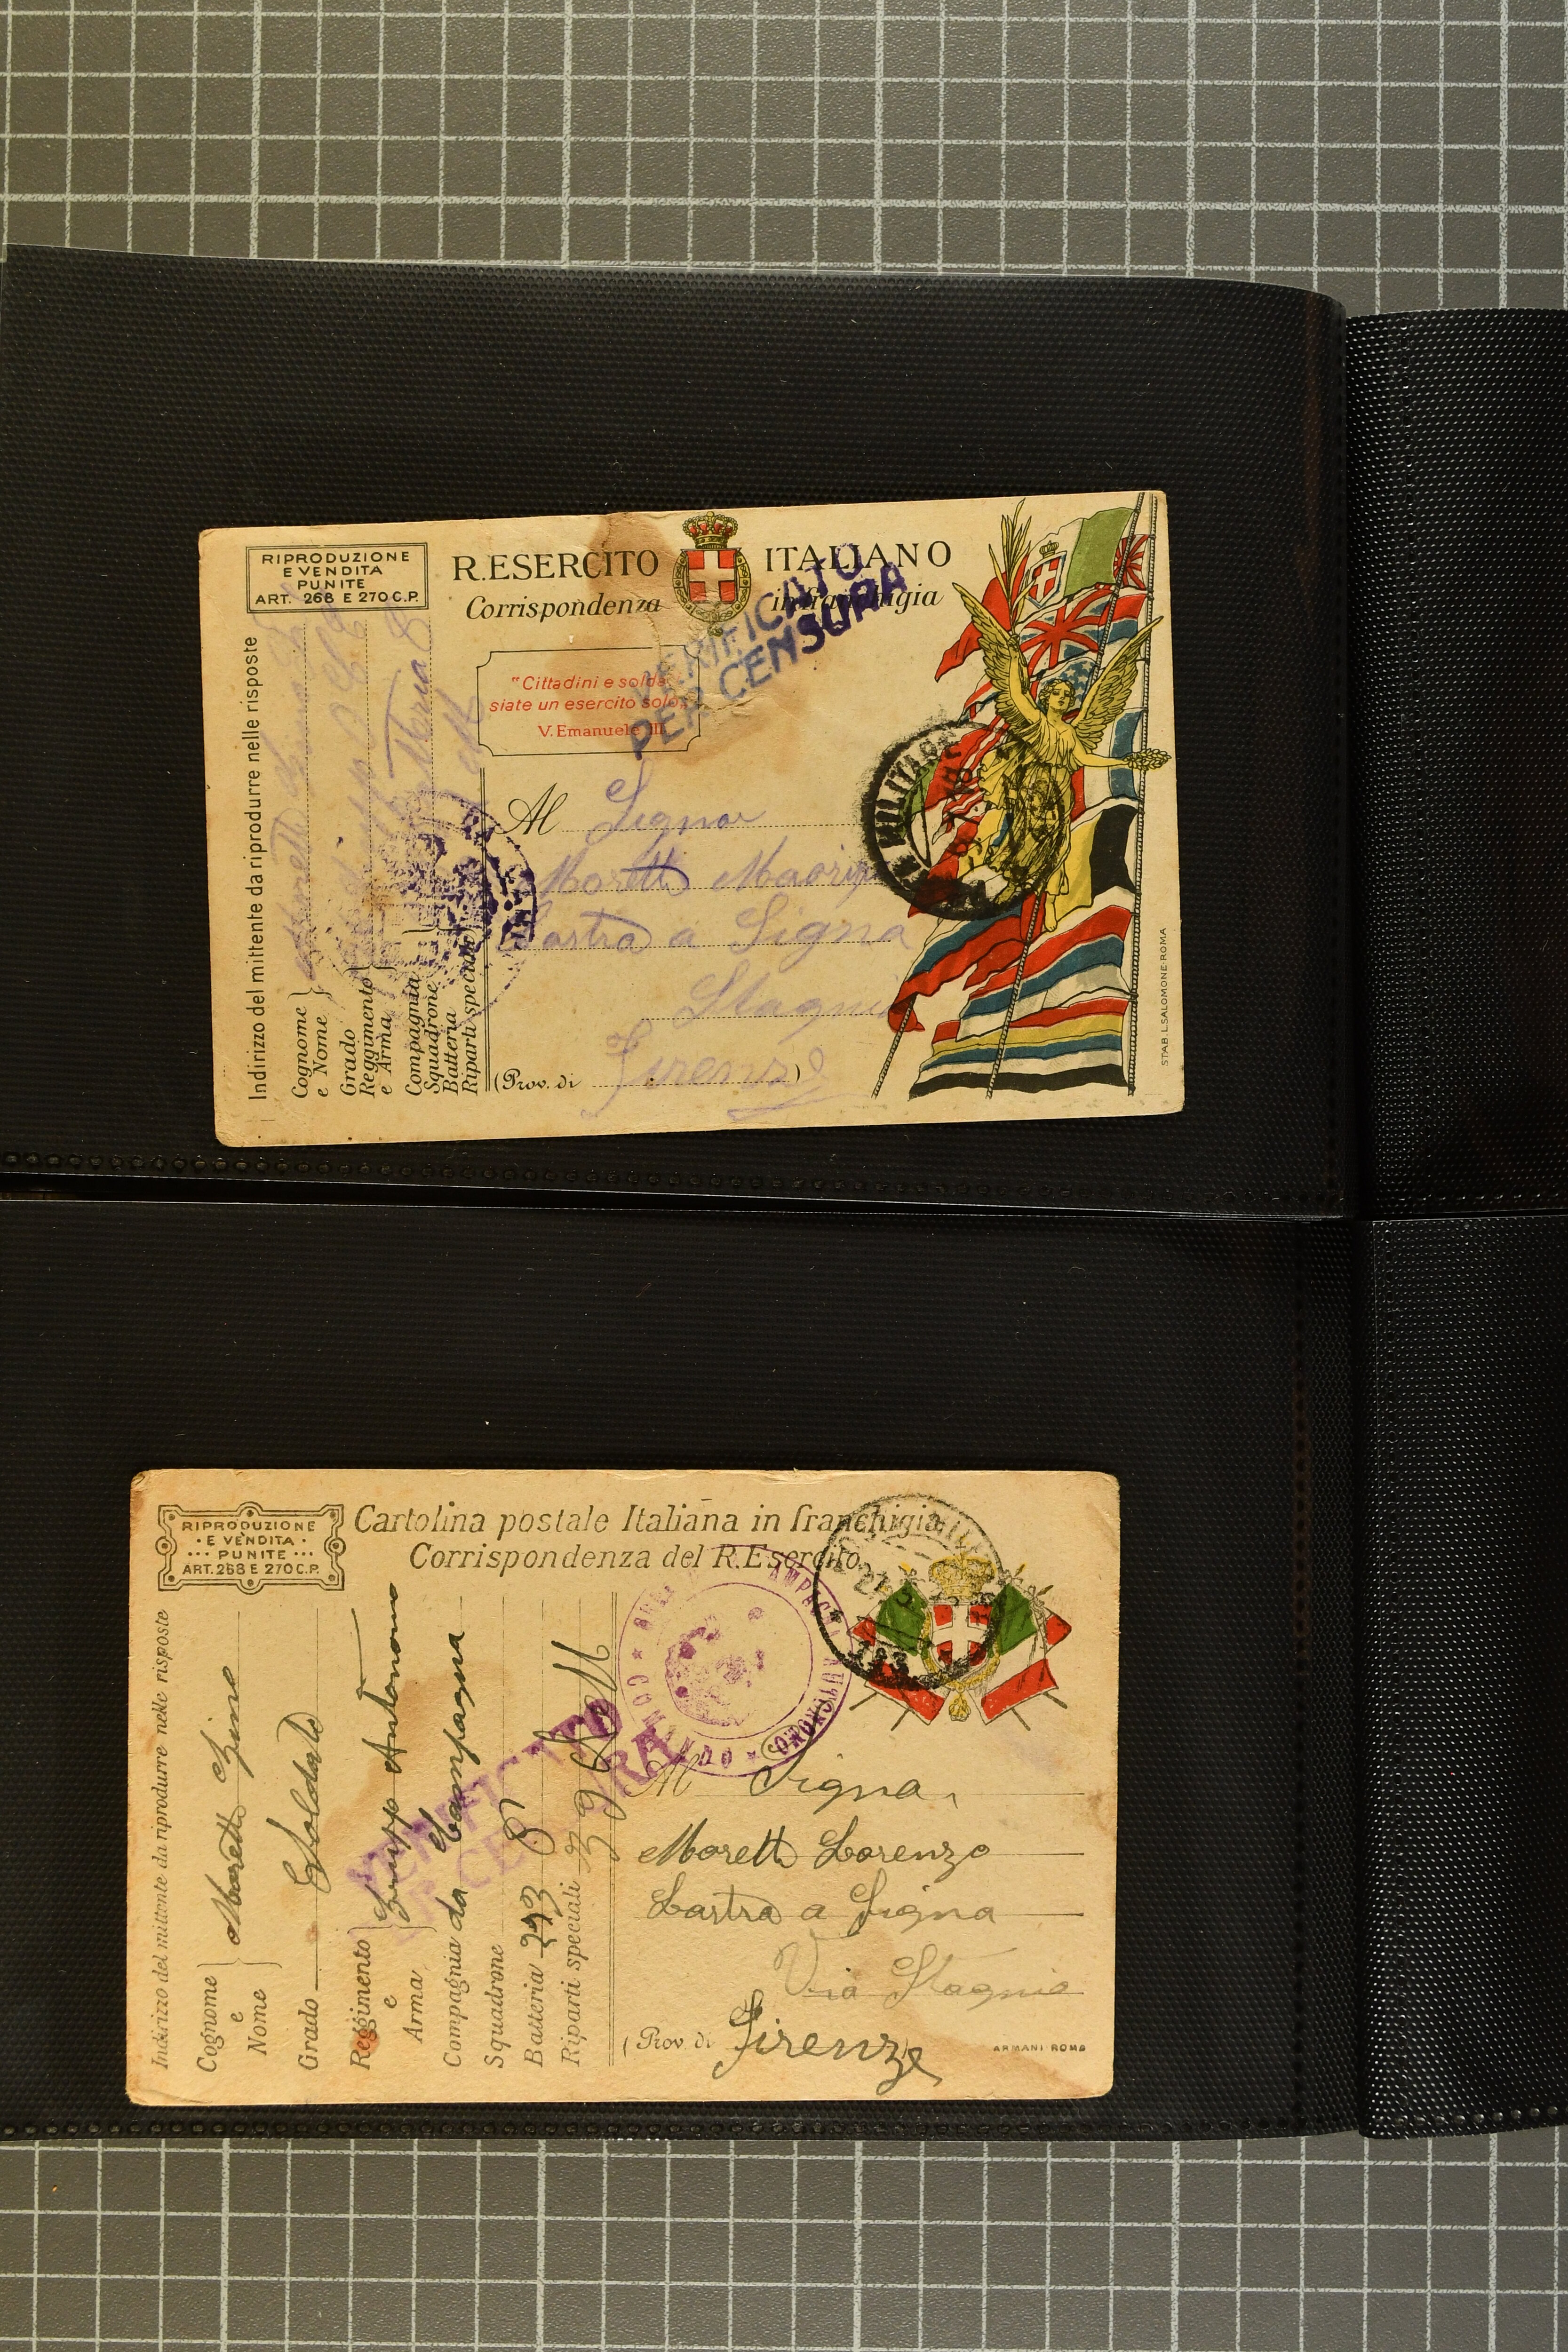 RIPRODUZIONE
E VENDITA
PUNITE
ART. 268 E 270 C.P.
R. ESERCITO ITALIANO
Corrispondenza in franchigia
"Cittadini e solda
siate un esercito solo
V. Emanuele III
VERIFICATO
PER CENSURA
Indirizzo del mittente da riprodurre nelle risposte
Cognome
e Nome
Grado
Reggimento
e Arma
Compagnia
Squadrone
Batteria
Riparti speciali
Al Signor
Moretti
Lastra a Signa
Stagno
(Prov. di Firenze)
MILITARE
STAB. L. SALOMONE-ROMA
RIPRODUZIONE
· E VENDITA ·
··· PUNITE ···
ART. 268 E 270 C.P.
Cartolina postale Italiana in franchigia
Corrispondenza del R. Esercito
Indirizzo del mittente da riprodurre nelle risposte
Cognome
e
Nome
Moretti Gino
Grado Soldato
Reggimento
e
Arma
Gruppo Autonomo
Compagnia da Campagna
Squadrone
Batteria
Riparti speciali
VERIFICATO
COMANDO
AUTONOMO
Al Signa
Moretti Lorenzo
Lastra a Signa
Via Stagno
(Prov. di Firenze
ARMANI ROMA